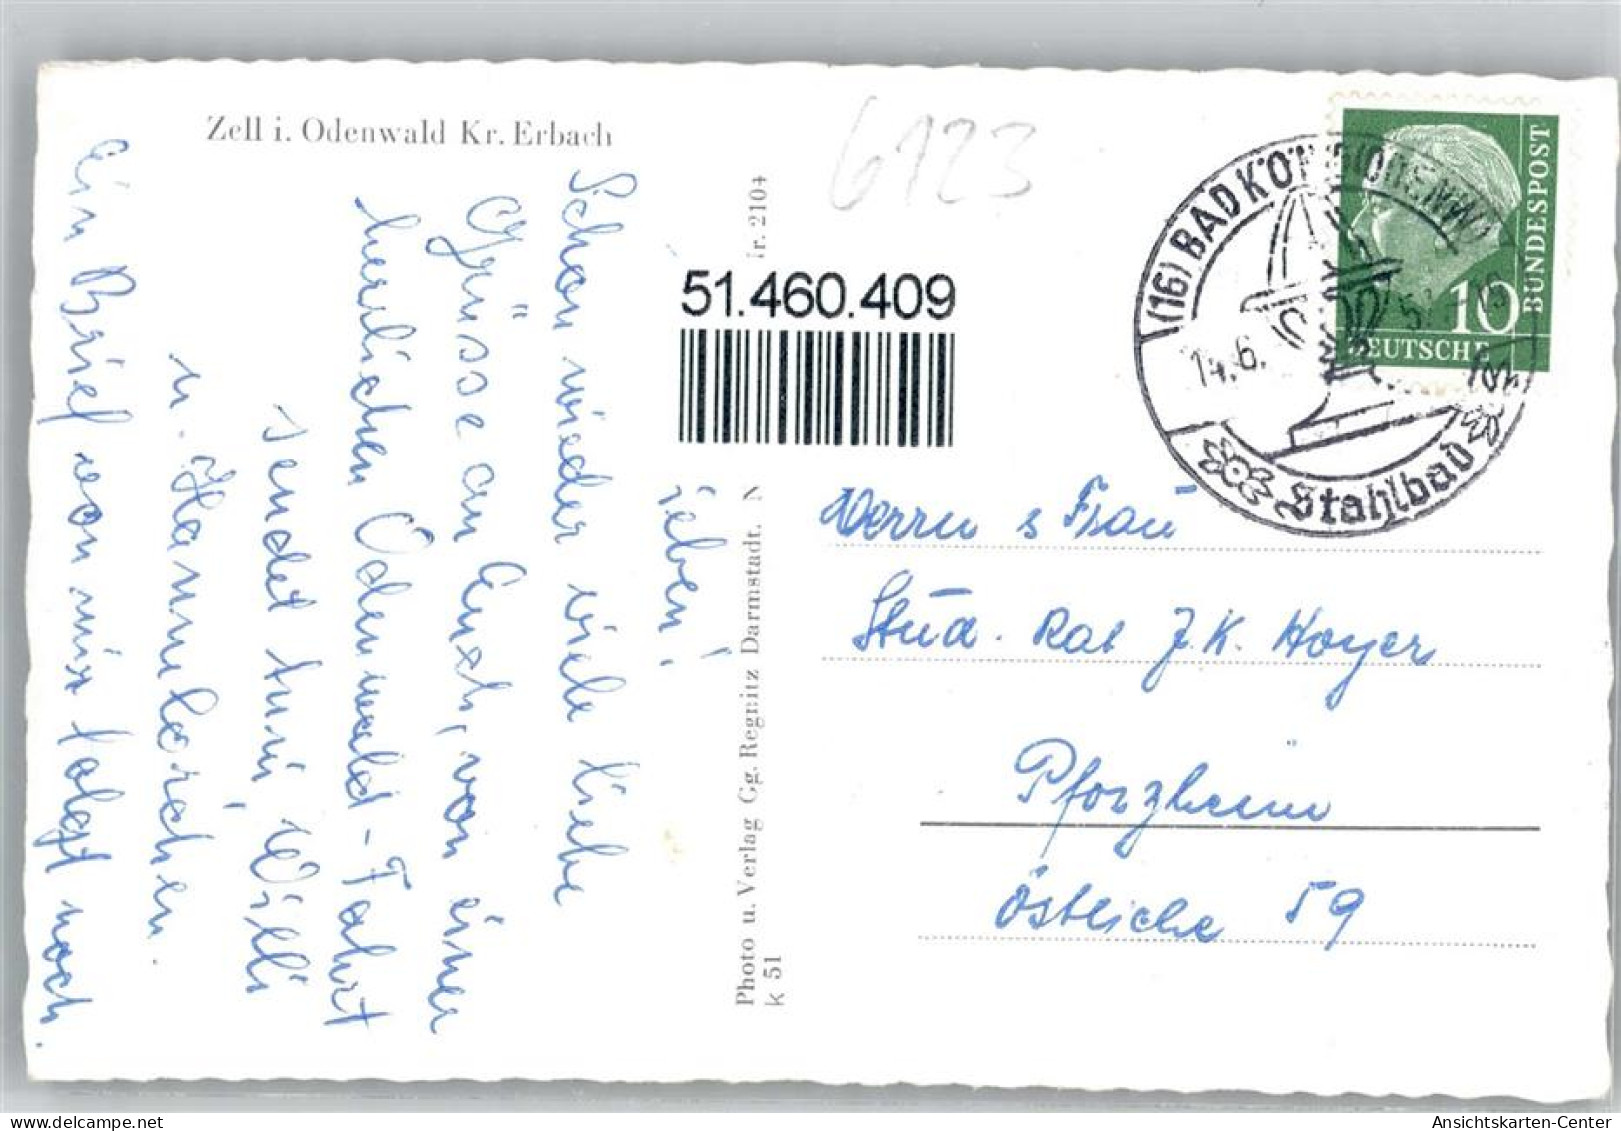 Zell i. Odenwald Kr. Erbach
6123
51.460.409
(16) BAD KÖNIG (ODENW)
14.6.
Stahlbad
DEUTSCHE
BUNDESPOST
10
Ihr Lieben!
Schon wieder viele liebe
Grüsse an Euch, von einer
herrlichen Odenwald-Fahrt
sendet Euch, Willi
u. Hannelorchen.
Ein Brief von mir folgt noch.
Photo u. Verlag Gg. Regnitz Darmstadt. N
k 51
Herrn & Frau
Stud. Rat J. K. Hoyer
Pforzheim
Östliche 59
Ansichtskarten-Center